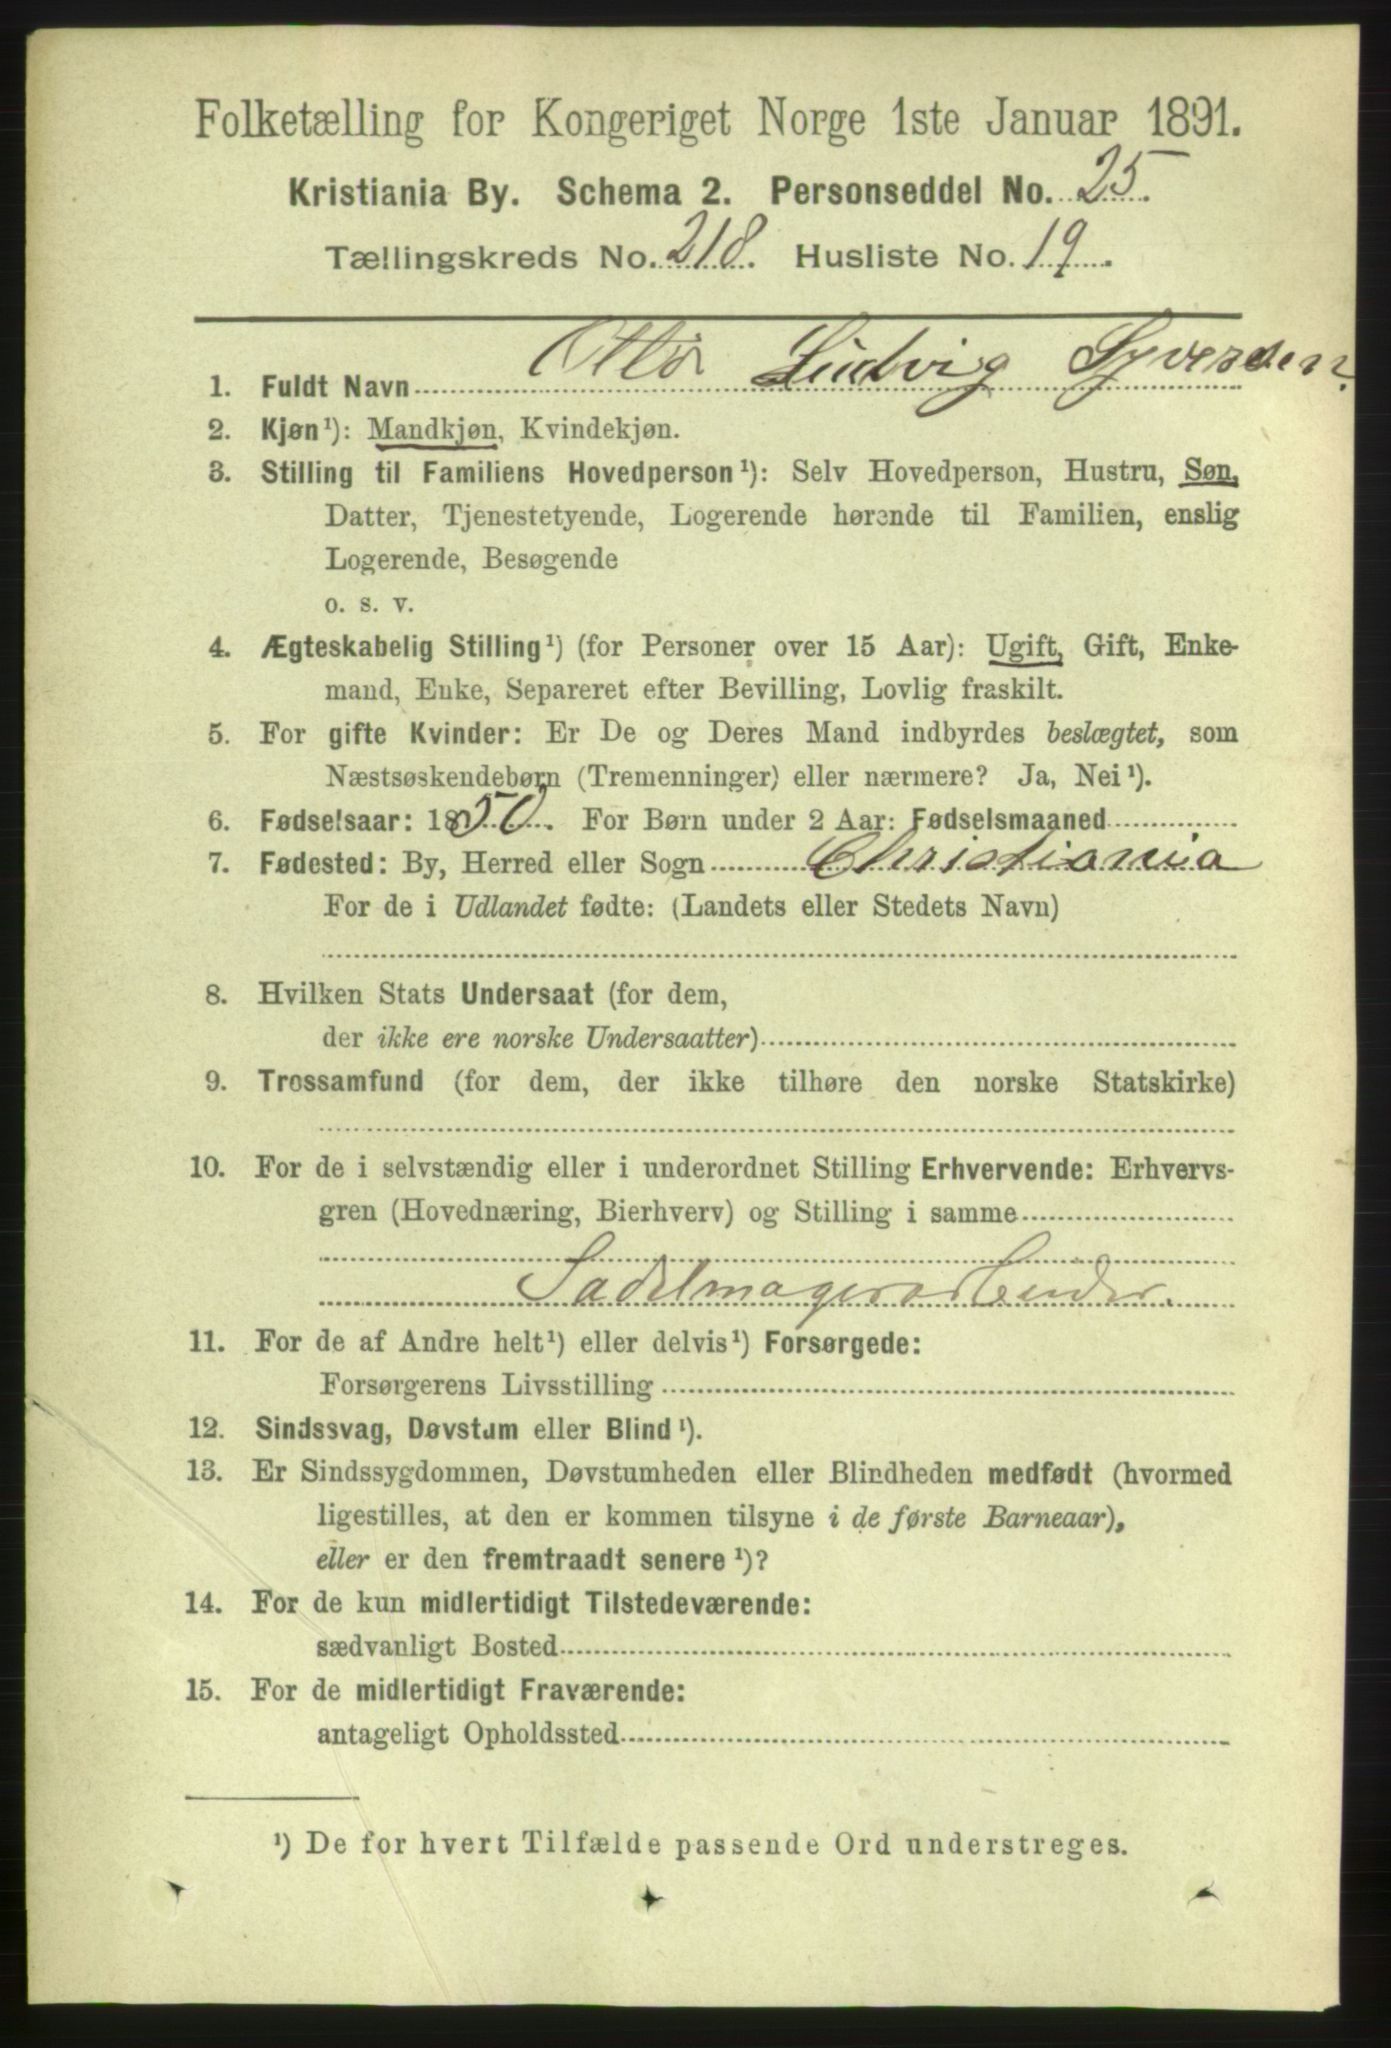 Folketælling for Kongeriget Norge 1ste Januar 1891.
Kristiania By. Schema 2. Personseddel No. 25.
Tællingskreds No. 218. Husliste No. 19.
1. Fuldt Navn Otto Ludvig Syversen.
2. Kjøn¹): Mandkjøn, Kvindekjøn.
3. Stilling til Familiens Hovedperson¹): Selv Hovedperson, Hustru, Søn,
Datter, Tjenestetyende, Logerende hørende til Familien, enslig
Logerende, Besøgende
o. s. v.
4. Ægteskabelig Stilling¹) (for Personer over 15 Aar): Ugift, Gift, Enke-
mand, Enke, Separeret efter Bevilling, Lovlig fraskilt.
5. For gifte Kvinder: Er De og Deres Mand indbyrdes beslægtet, som
Næstsøskendebørn (Tremenninger) eller nærmere? Ja, Nei¹).
6. Fødselsaar: 1850. For Børn under 2 Aar: Fødselsmaaned
7. Fødested: By, Herred eller Sogn Christiania
For de i Udlandet fødte: (Landets eller Stedets Navn)
8. Hvilken Stats Undersaat (for dem,
der ikke ere norske Undersaatter)
9. Trossamfund (for dem, der ikke tilhøre den norske Statskirke)
10. For de i selvstændig eller i underordnet Stilling Erhvervende: Erhvervs-
gren (Hovednæring, Bierhverv) og Stilling i samme
Sadelmagerarbeider.
11. For de af Andre helt¹) eller delvis¹) Forsørgede:
Forsørgerens Livsstilling
12. Sindssvag, Døvstum eller Blind¹).
13. Er Sindssygdommen, Døvstumheden eller Blindheden medfødt (hvormed
ligestilles, at den er kommen tilsyne i de første Barneaar),
eller er den fremtraadt senere¹)?
14. For de kun midlertidigt Tilstedeværende:
sædvanligt Bosted
15. For de midlertidigt Fraværende:
antageligt Opholdssted
¹) De for hvert Tilfælde passende Ord understreges.